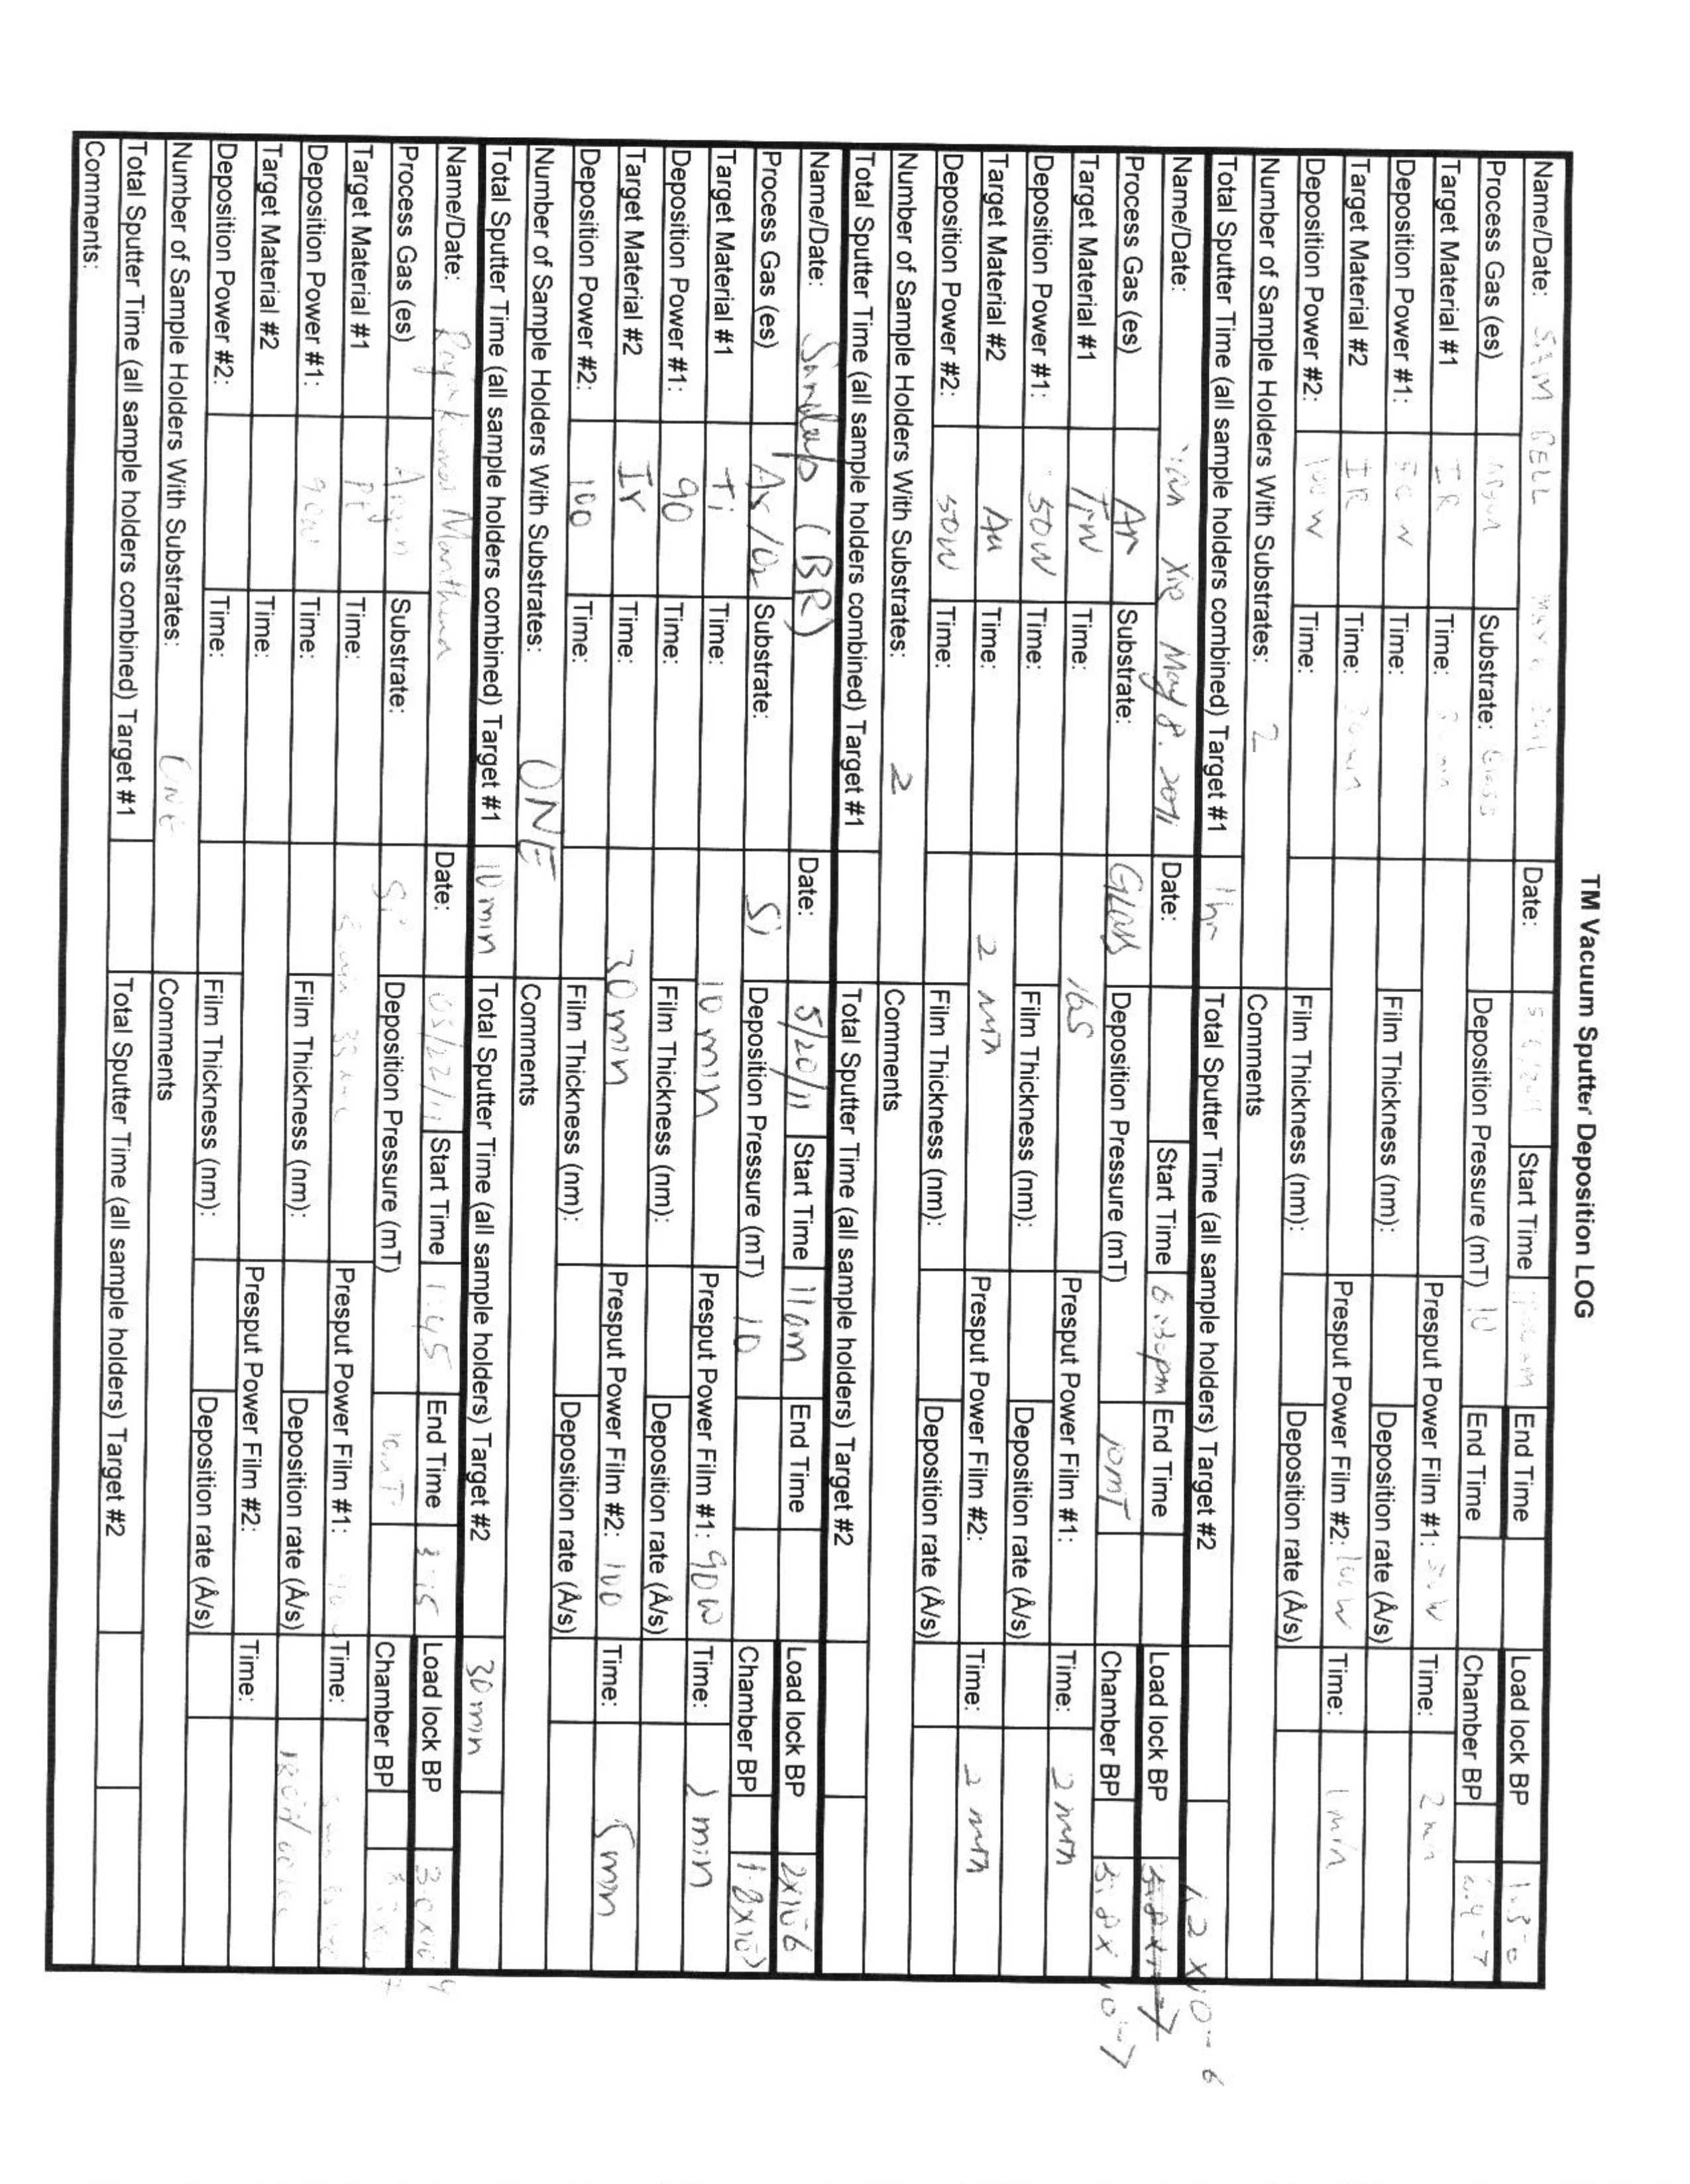 TM Vacuum Sputter Deposition LOG
Name/Date: SAM BELL Date: Start Time End Time Load lock BP
Process Gas (es) Argon Substrate: Glass Deposition Pressure (mT) 10 End Time Chamber BP
Target Material #1 IR Time: Presput Power Film #1: Time: 2 min
Deposition Power #1: Time: Film Thickness (nm): Deposition rate (Å/s)
Target Material #2 IR Time: 30 min Presput Power Film #2: 100W Time: 1 min
Deposition Power #2: 100 W Time: Film Thickness (nm): Deposition rate (Å/s)
Number of Sample Holders With Substrates: 2 Comments
Total Sputter Time (all sample holders combined) Target #1 1 hr Total Sputter Time (all sample holders) Target #2
1.2 x10-6
Name/Date: May 8. 2011 Date: Start Time End Time Load lock BP
Process Gas (es) Ar Substrate: Glass Deposition Pressure (mT) 10mT Chamber BP 5.8x10-7
Target Material #1 TiW Time: 16s Presput Power Film #1: Time: 2 min
Deposition Power #1: 50W Time: Film Thickness (nm): Deposition rate (Å/s)
Target Material #2 Au Time: 2 min Presput Power Film #2: Time: 2 min
Deposition Power #2: 50W Time: Film Thickness (nm): Deposition rate (Å/s)
Number of Sample Holders With Substrates: 2 Comments
Total Sputter Time (all sample holders combined) Target #1 Total Sputter Time (all sample holders) Target #2
Name/Date: (BR) Date: 5/20/11 Start Time 11am End Time Load lock BP 2x10-6
Process Gas (es) Ar/O2 Substrate: Si Deposition Pressure (mT) 10 Chamber BP
Target Material #1 Ti Time: 10 min Presput Power Film #1: 90W Time: 2 min
Deposition Power #1: 90 Time: Film Thickness (nm): Deposition rate (Å/s)
Target Material #2 Ir Time: 30 min Presput Power Film #2: 100 Time: 5 min
Deposition Power #2: 100 Time: Film Thickness (nm): Deposition rate (Å/s)
Number of Sample Holders With Substrates: ONE Comments
Total Sputter Time (all sample holders combined) Target #1 10 min Total Sputter Time (all sample holders) Target #2 30 min
Name/Date: Date: 05/22/11 Start Time 1:45 End Time Load lock BP
Process Gas (es) Argon Substrate: Si Deposition Pressure (mT) 10mT Chamber BP
Target Material #1 Pt Time: Presput Power Film #1: Time:
Deposition Power #1: 90W Time: Film Thickness (nm): Deposition rate (Å/s)
Target Material #2 Time: Presput Power Film #2: Time:
Deposition Power #2: Time: Film Thickness (nm): Deposition rate (Å/s)
Number of Sample Holders With Substrates: ONE Comments
Total Sputter Time (all sample holders combined) Target #1 Total Sputter Time (all sample holders) Target #2
Comments: